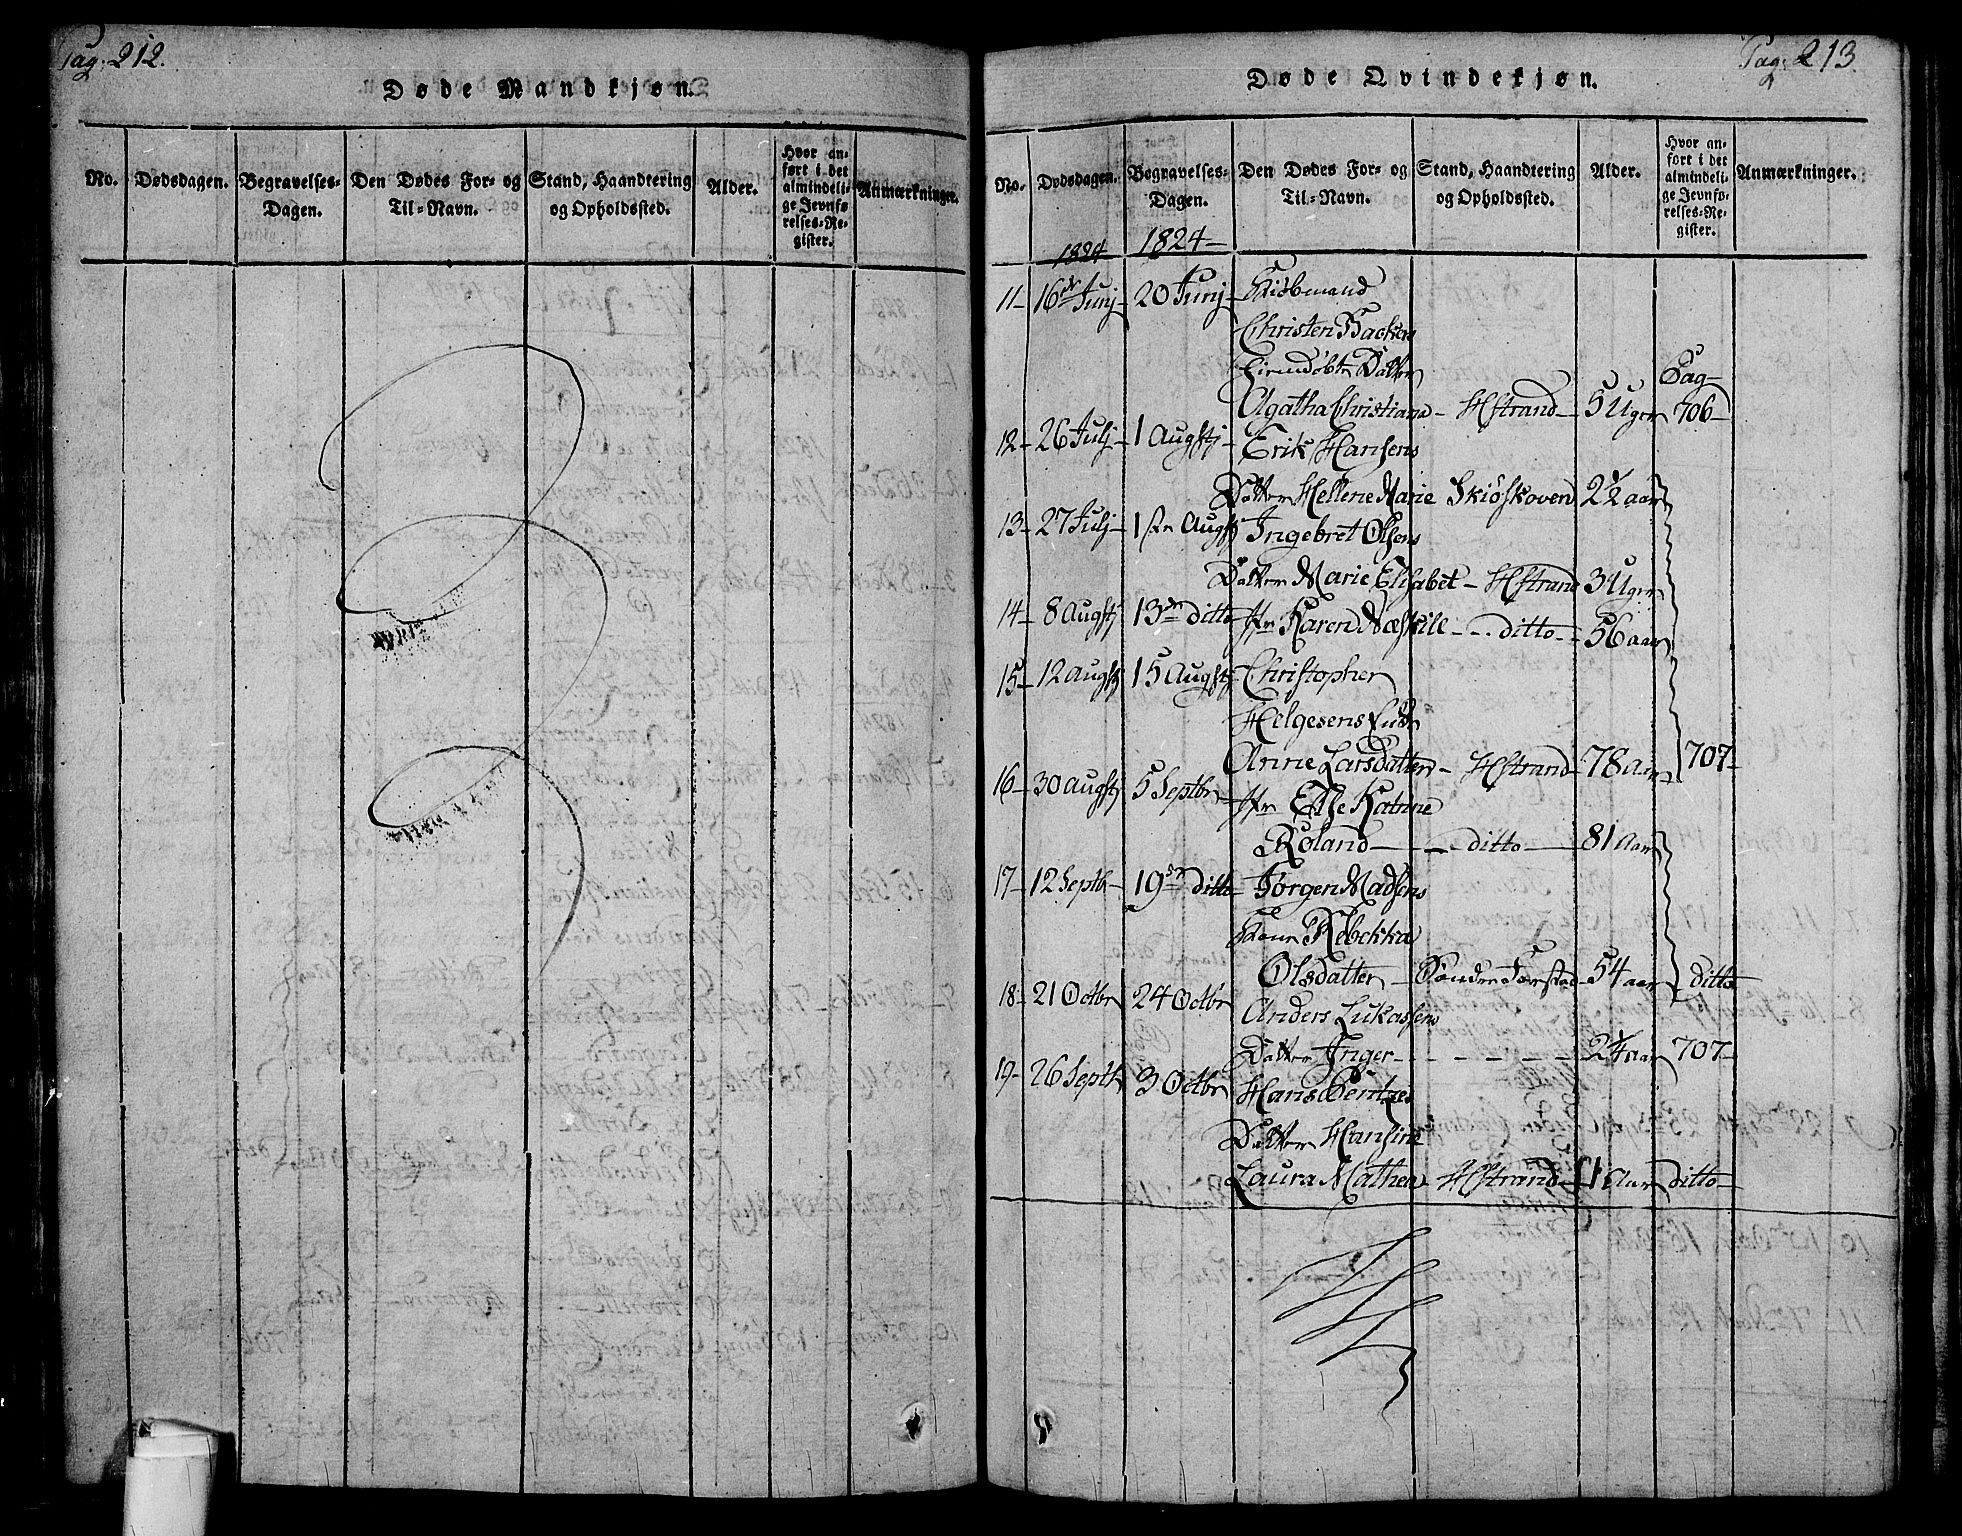 Pag. 212.
Døde Mandkjøn.
No. Dødsdagen. Begravelses-Dagen. Den Dødes For- og Til-Navn. Stand, Haandtering og Opholdssted. Alder. Hvor anført i det almindelige Jevnførelses-Register. Anmærkninger.
Pag. 213
Døde Qvindekjøn.
No. Dødsdagen. Begravelses-Dagen. Den Dødes For- og Til-Navn. Stand, Haandtering og Opholdssted. Alder. Hvor anført i det almindelige Jevnførelses-Register. Anmærkninger.
1824 1824
11 16de Junj 20 Junj Kiøbmand
Christen Backes
Datter Pag
Agatha Christiana Hstrand 5 Uger 706
12 26 Julj 1 Augstj Erik Hansens
Datter Hellene Marie Skiøskoven 2½ aar
13 27 Julj 1ste Augstj Ingebret Olsens
Datter Marie Elisabet Hstrand 3 Uger
14 8 Augstj 13de ditto Karen Næskill ditto 56 aar
15 12 Augstj 15 Augstj Christopher
Helgesens
Anne Larsdatter Hstrand 78 Aar 707
16 30 Augstj 5 Septbr Elle Katrine
Roland ditto 81 Aar
17 12 Septbr 19de ditto Jørgen Madsens
Kone Rebekka
Olsdatter 54 aar ditto
18 21 Octbr 24 Octbr Anders Lukassens
Datter Inger 2¼ aar 707
19 26 Septbr 3 Octbr Hans Bentzes
Datter Hansine
Laura Mathea Hstrand 1 Aar ditto